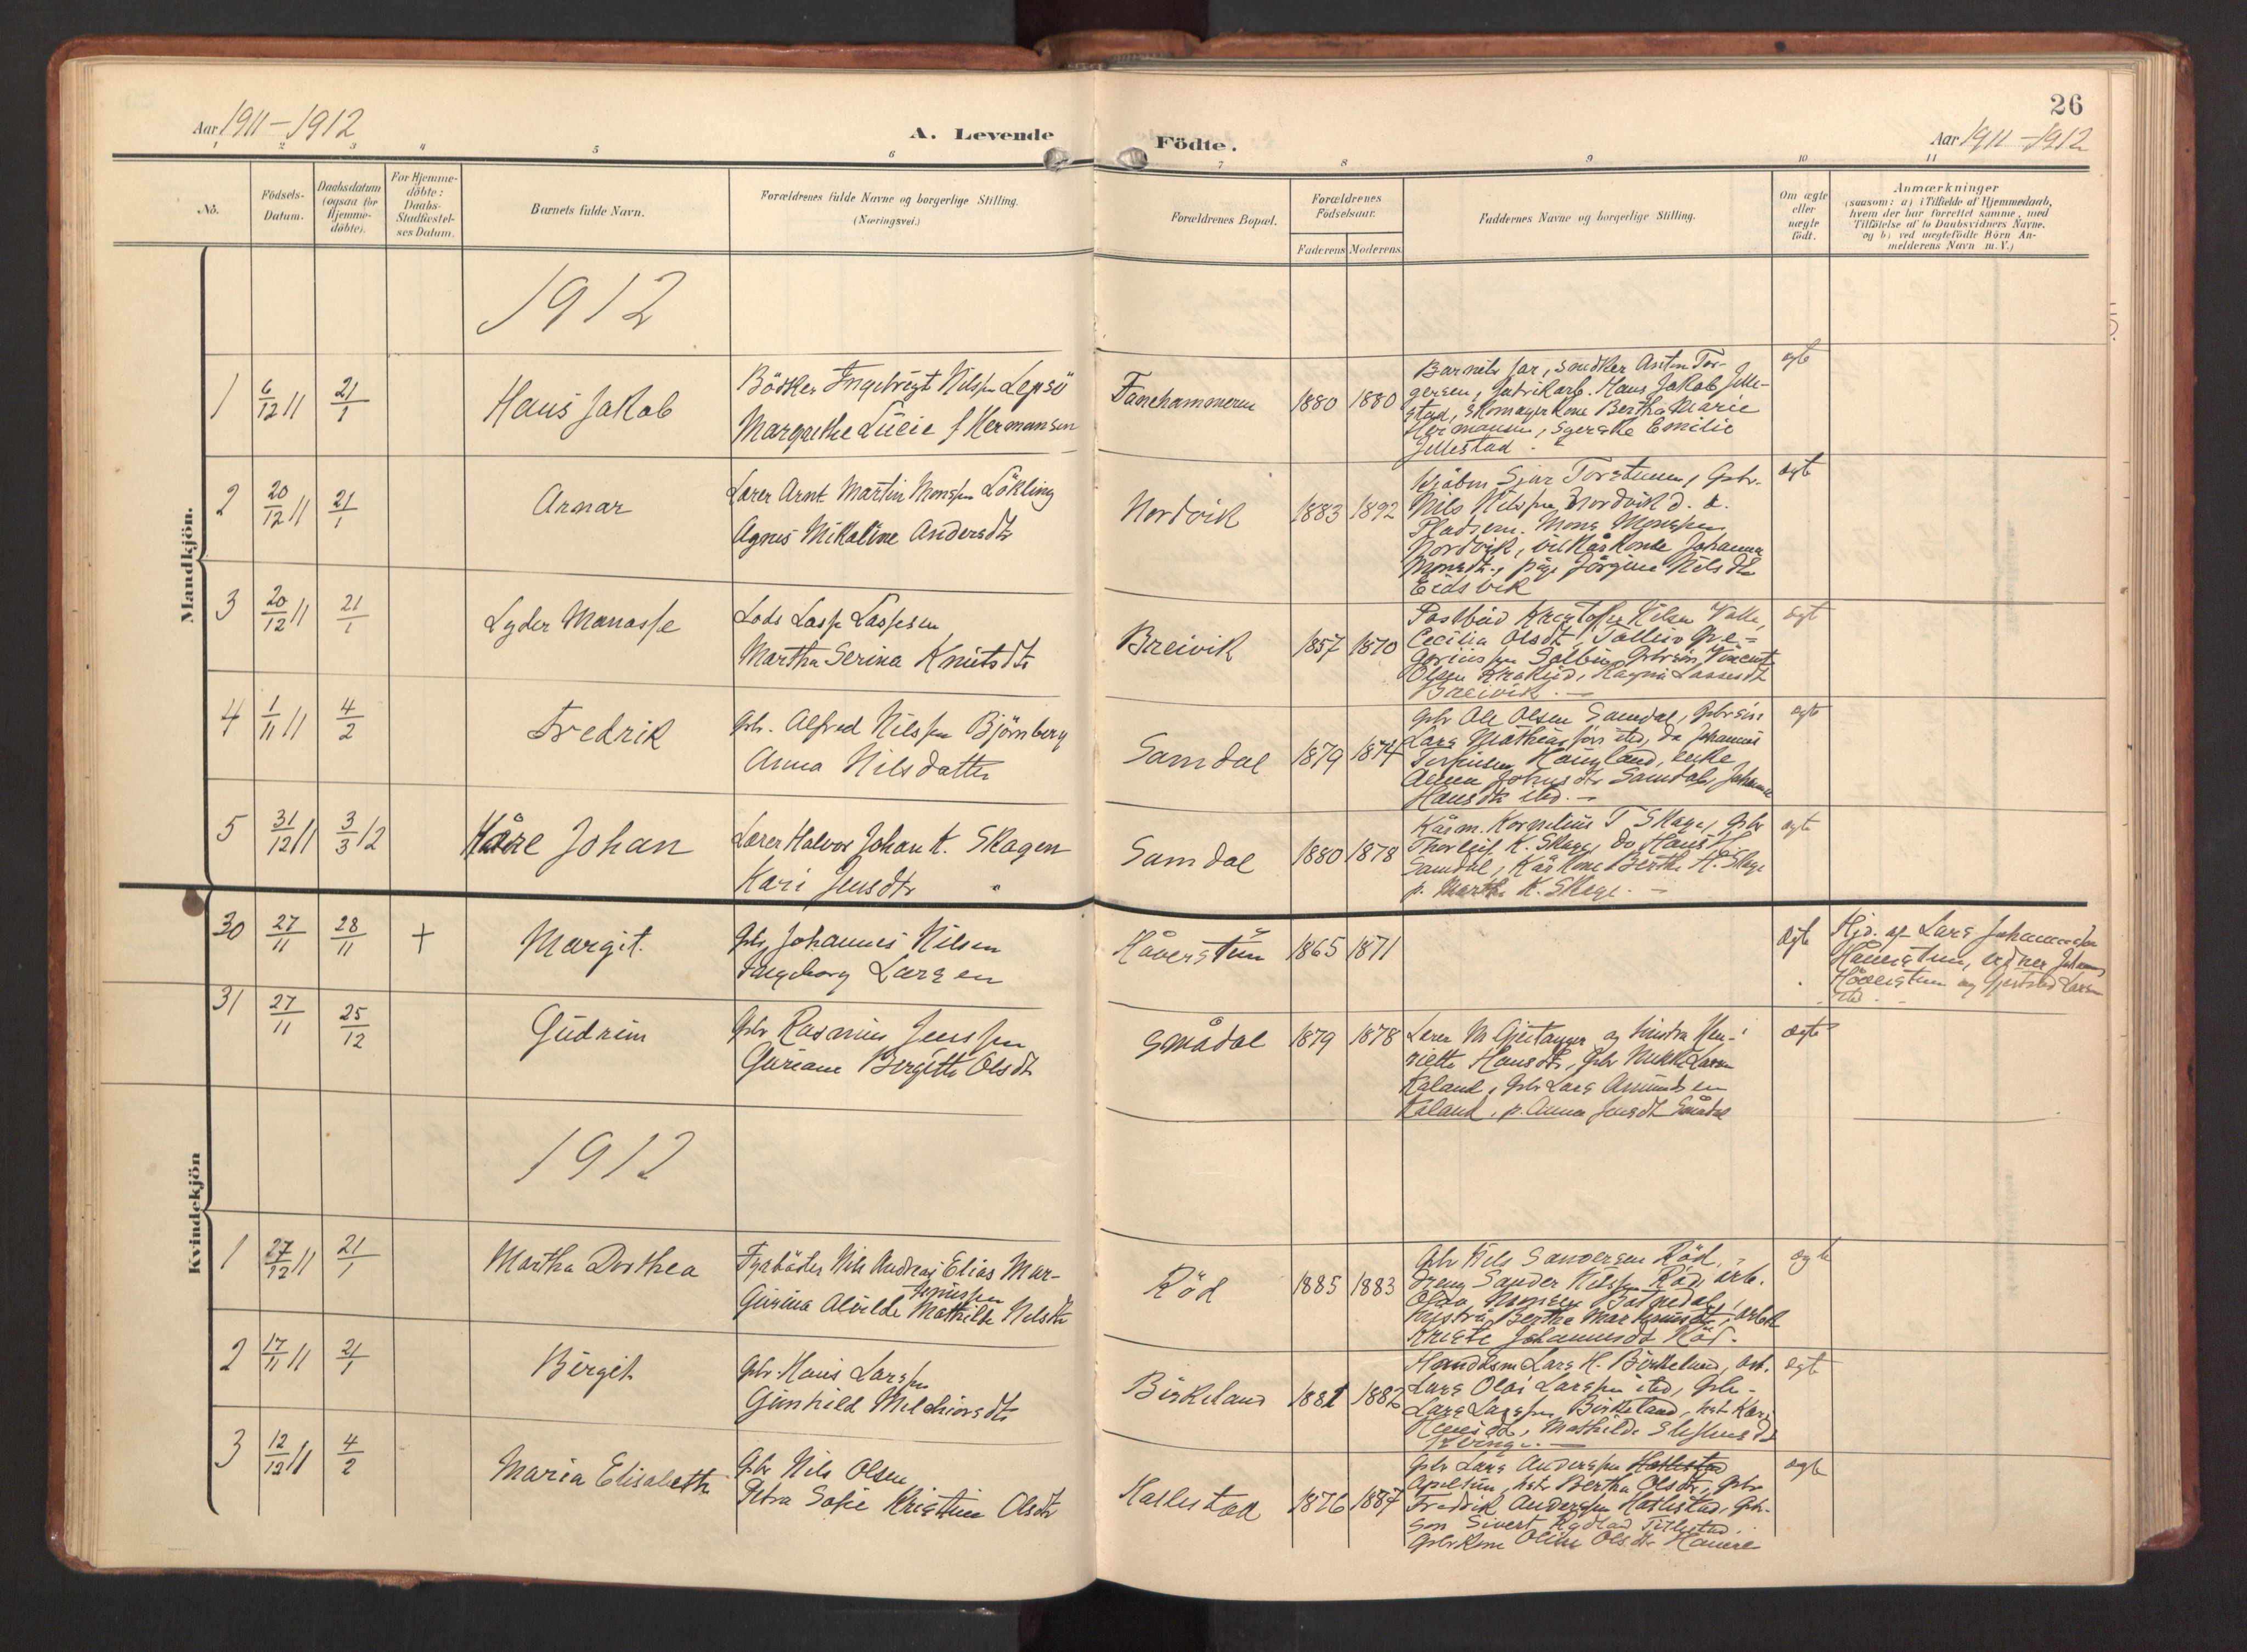 26
Aar 1911-1912
A. Levende
Födte.
Aar 1911-1912
1 2 3 4 5 6 7 8 9 10 11
No.
Födsels-
Datum.
Daabsdatum
(ogsaa for
Hjemme-
döbte).
For Hjemme-
döbte:
Daabs-
Stadfæstel-
ses Datum.
Barnets fulde Navn.
Forældrenes fulde Navne og borgerlige Stilling.
(Næringsvei.)
Forældrenes Bopæl.
Forældrenes
Födselsaar.
Faderens Moderens
Faddernes Navne og borgerlige Stilling.
Om ægte
eller
uægte
födt.
Anmærkninger
(saasom: a) i Tilfælde af Hjemmedaab,
hvem der har forrettet samme, med
Tilföielse af to Daabsvidners Navne.
og b) ved uægtefödte Börn An-
melderens Navn m. V.)
Mandkjön.
1912
1 6/12 11 21/1 Hans Jakob
Bödker Ingebrigt Nilssen Lepsö
Margrethe Lucie f Hermansen
Fanehammeren 1880 1880
Barnets far, snedker Anton Tor-
gersen, fabrikarb. Hans Jakob Jelle-
stad, skomagerkone Bertha Marie
Hermansen, syerske Emilie
Jellestad.
ægte
2 20/12 11 21/1 Arnar
Lærer Arnt Martin Monsen Lökling
Agnes Nikoline Andersdtr
Nordvik 1883 1892
Nils Nilssen Nordvik d. æ.
Pladsem. Mons Monssen
Nordvik, vilkårskone Johanna
Monsdtr, pige Jörgine Nilsdtr
Eidsvik
ægte
3 20/12 11 21/1 Lyder Manasse
Lods Lasse Lassesen
Martha Serina Knutsdtr
Breivik 1857 1870
Postbud Kristoffer Nilsen Valle,
Cecilia Olsdtr, Tollev Gre-
goriussen Gbrsön Vincent
Olsen Ragna Lassesdtr
Breivik. —
ægt
4 1/11 11 4/2 Fredrik
Gbr. Alfred Nilssen Björnberg
Anna Nilsdatter
Samdal 1879 1874
Gbr Ole Olsen Samdal, Gbrsön
Lars Mathiassen sted, do Johannes
Haugland, enke
Anna Johnsdtr Samdal, Johanna
Hansdtr sted. —
ægte
5 31/12 11 3/3 12 Kåre Johan
Lærer Halvor Johan K. Skagen
Kari Jensdtr
Samdal 1880 1878
Kårm. Kornelius T Skage, Gbr
Thorleif K. Skage, do Hans H.
Samdal, Kårkone Berthe H. Skage
p. Martha K. Skage. —
ægte
Kvindekjön
30 27/11 28/11 + Margit.
Gbr Johannes Nilsen
Ingeborg Larsen
Håverstun 1865 1871
ægte
Hjd. af Lars Johannessen
Håverstun, vidner Johannes
Håverstun og Larsen
sted
31 27/11 25/12 Gudrun
Gbr Rasmus Jenssen
Guriane Bergitte Olsdtr
Smådal 1879 1878
Lærer M Gjeitanger og hustru Hen-
riette Hansdtr, Gbr Larsen
Kaland, Gbr Lars Amundsen
Kaland, p. Anna Jensdtr Smådal
ægte
1912
1 27/12 11 21/1 Martha Dorthea
Fyrböder Nils Andreas Elias Mar-
kussen
Gurina Alvilde Mathilde Nilsdtr
Röd 1885 1883
Gbr Nils Sandersen Röd,
Dreng Sander Nilssen Röd, arb.
Olav Monsen
hustru Berthe Markusdtr, arb
Kriste Johannesdtr Röd.
ægte
2 17/11 11 21/1 Birgit
Gbr. Hans Larssen
Gunhild Melchiorsdtr
Birkeland 1881 1882
Handelsm Lars H. Birkeland, arb.
Lars Olai Larssen sted, Gbr.
Lars Larssen Birkeland, hst Kari
Hansdtr, Mathilde
ægte
3 12/12 11 4/2 Maria Elisabeth
Gbr Nils Olsen
Petra Sofie Kristine Olsdtr
Hatlestad 1876 1887
Gbr Lars Anderssen Hatlestad
Apeltun, hstr Bertha Olsdtr, Gbr
Fredrik Anderssen Hatlestad, Gbr-
sön Sivert Titlestad.
Gbrkone Oline Olsdtr Haukre
ægte